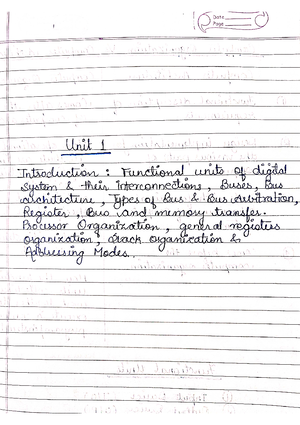 Date
Page
Unit 1
Introduction : Functional units of digital
System & their Interconnections, Buses, Bus
architecture, Types of Bus & Bus Arbitration,
Register, Bus and memory transfer.
Processor Organization, general registers
organization, stack organization &
Addressing Modes.